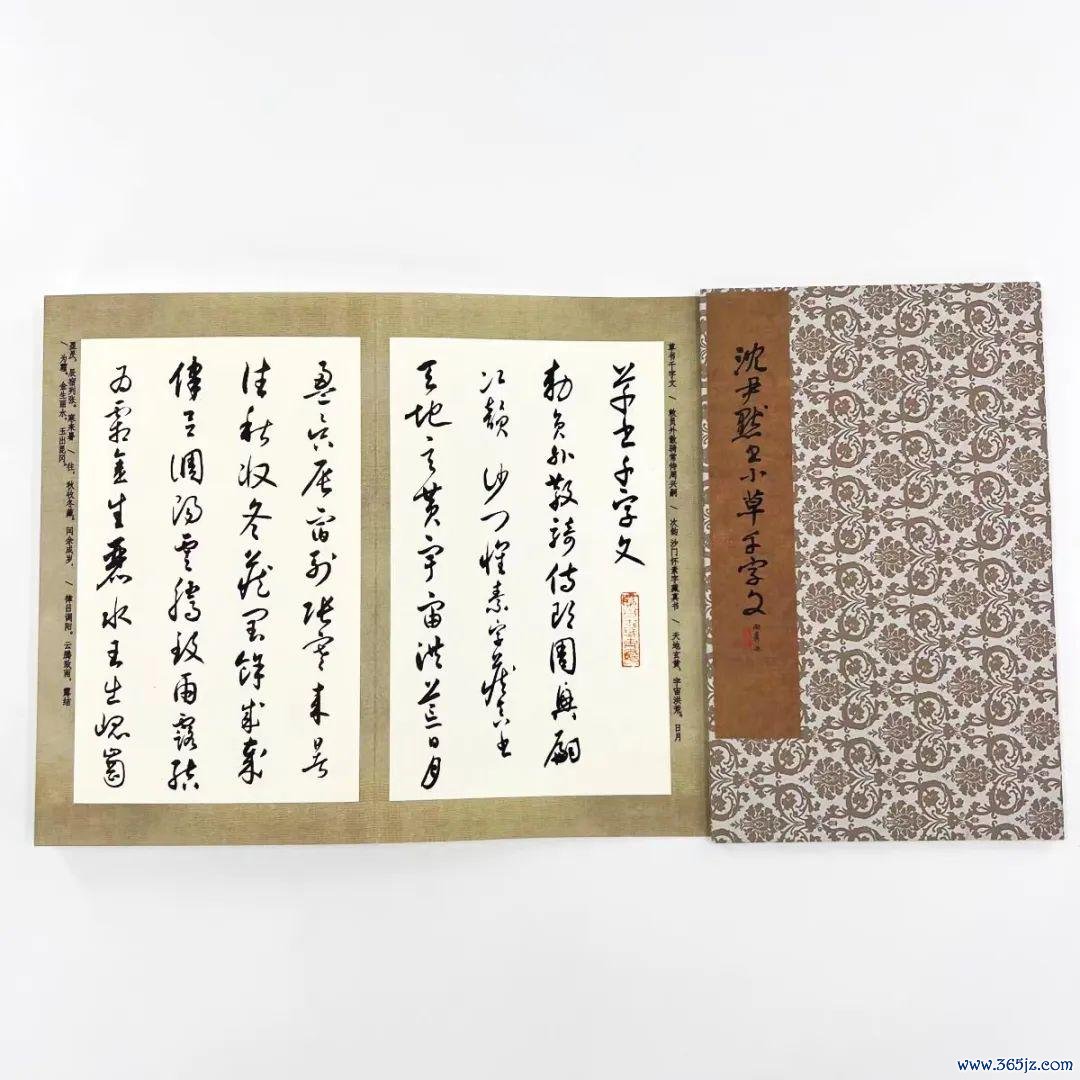 沈尹默书小草千字文
草书千字文 \ 敕员外散骑常侍周兴嗣 \ 次韵 沙门怀素字藏真书 \ 天地玄黄，宇宙洪荒。日月
草书千字文
敕员外散骑侍郎周兴嗣
次韻 沙门懷素字藏真书
天地玄黄宇宙洪荒日月
盈昃辰宿列张寒来暑
往秋收冬藏闰餘成歲
律吕调阳雲騰致雨露结
为霜金生麗水玉出崐崗
盈昃，辰宿列张。寒来暑 \ 往，秋收冬藏。闰余成岁， \ 律吕调阳。云腾致雨，露结
\ 为霜。金生丽水，玉出昆冈。
www.365jz.com